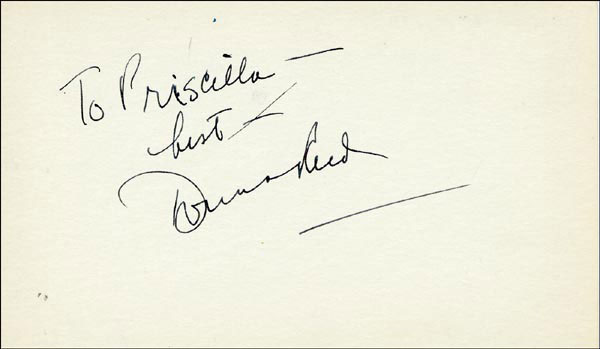 To Priscilla —
best
Donna Reed